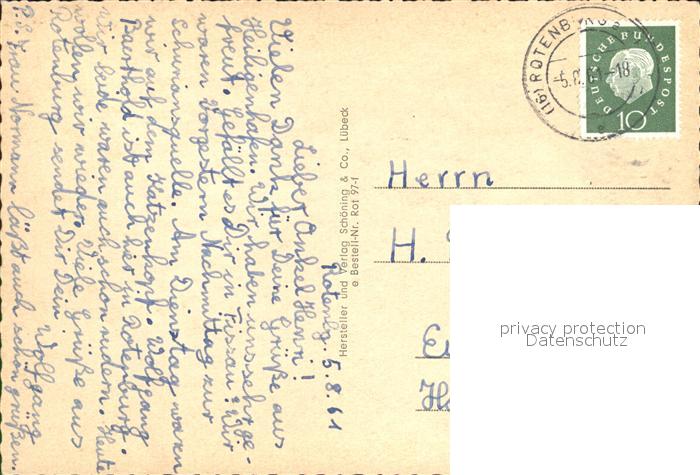 Rotenbg. 5.8.61
Lieber Onkel Henri!
Vielen Dank für Deine Grüße aus
Heiligenhafen. Wir haben uns sehr ge-
freut. Gefällt es Dir in Füssau? Wir
waren vorgestern Nachmittag zur
Schiransquelle. Am Dienstag waren
wir auf dem Katzenkopf. Wolfgang
Berthold ist auch hier zu Rotenburg.
wir beide waren auch schon rudern. Heute
wollen wir wieder. Viele Grüße aus
Rotenburg sendet Dir Dein
Wolfgang
P.S. Frau Normann läßt auch schön grüßen.
Hersteller und Verlag Schöning & Co., Lübeck
e Bestell-Nr. Rot 97-f
(16) ROTENBURG
-5.8.61-18
DEUTSCHE BUNDESPOST
10
Herrn
H.
privacy protection
Datenschutz